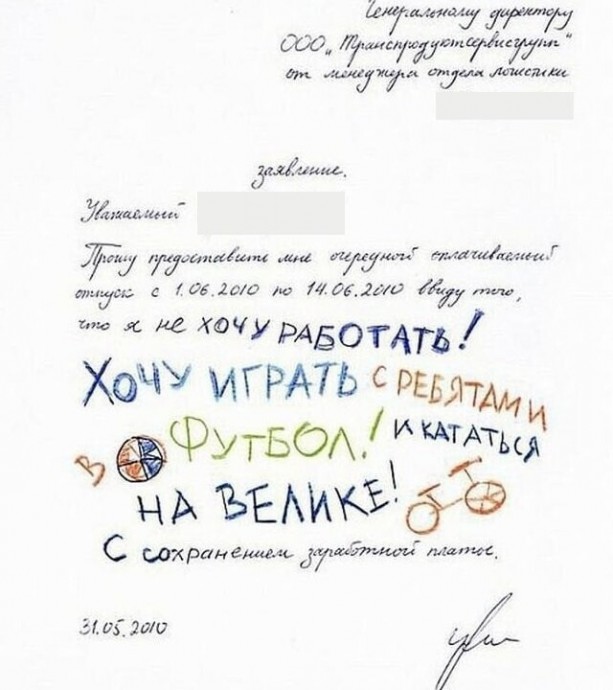 Генеральному директору
ООО „Транспродуктсервисгрупп"
от менеджера отдела логистики
заявление.
Уважаемый
Прошу предоставить мне очередной оплачиваемый
отпуск с 1.06.2010 по 14.06.2010 ввиду того,
что я не ХОЧУ РАБОТАТЬ!
ХОЧУ ИГРАТЬ С РЕБЯТАМИ
В ФУТБОЛ! И КАТАТЬСЯ
НА ВЕЛИКЕ!
С сохранением заработной платы.
31.05.2010